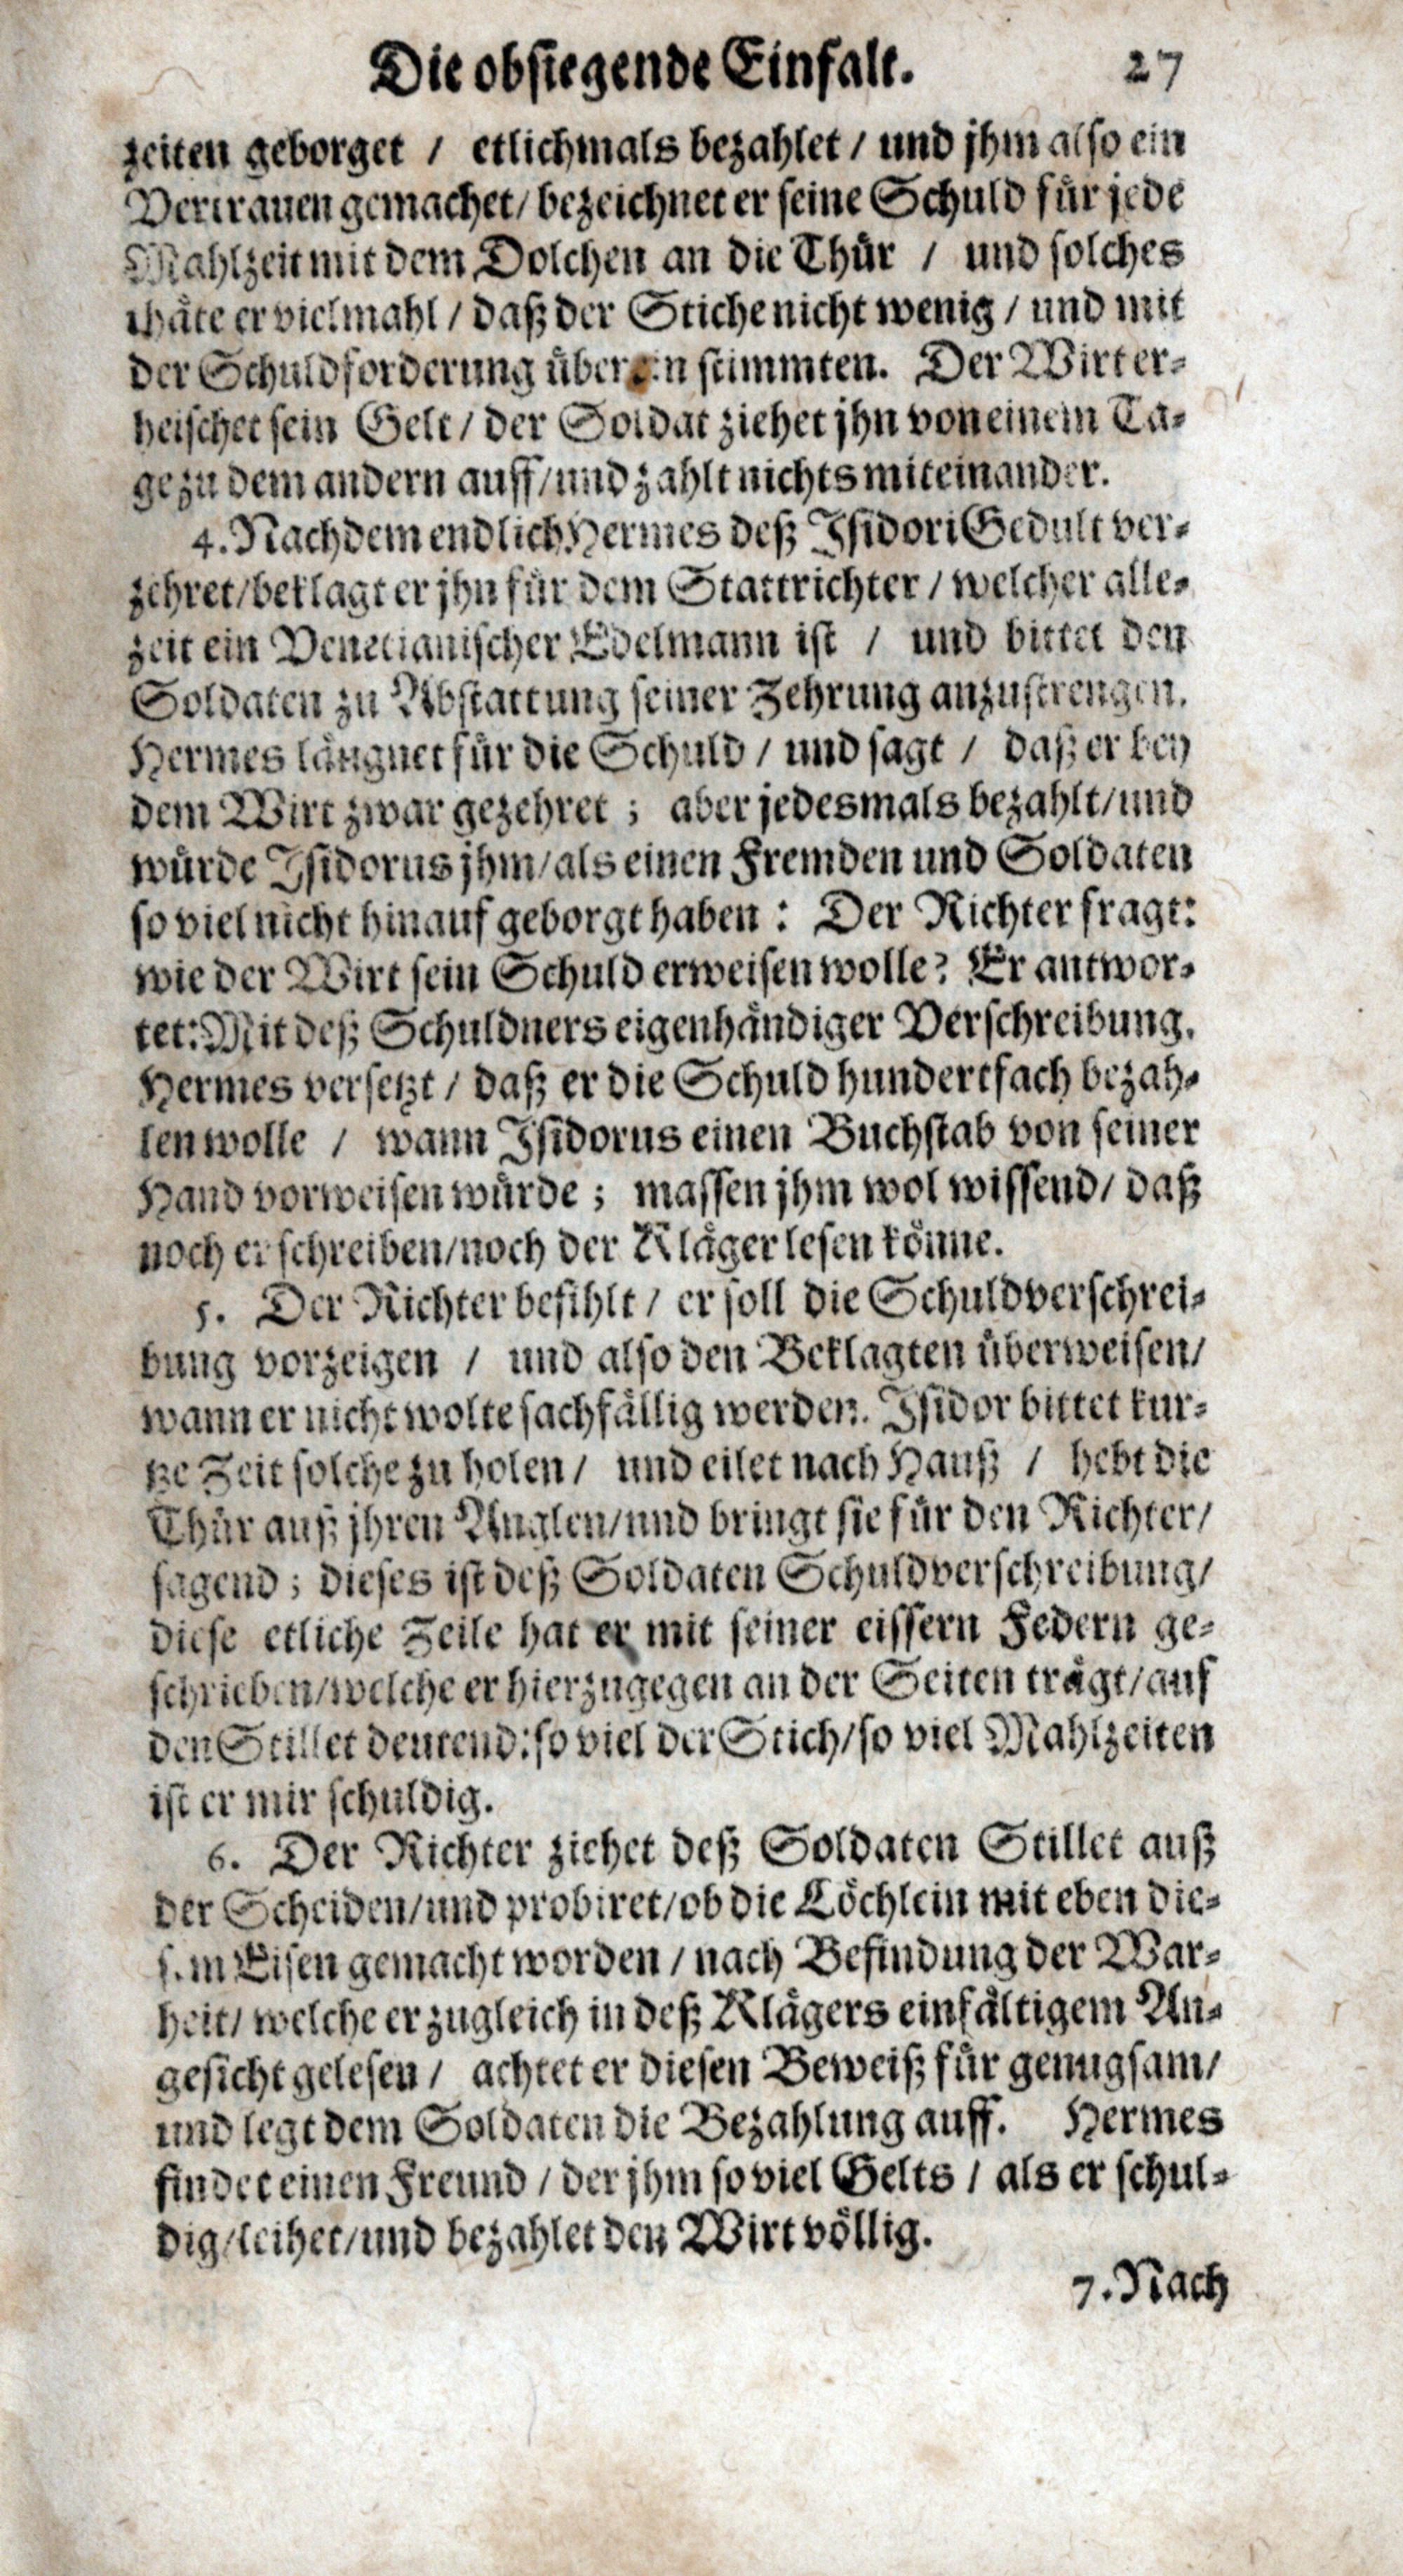 Die obsiegende Einfalt. 27
zeiten geborget / etlichmals bezahlet / und jhm also ein
Vertrauen gemachet / bezeichnet er seine Schuld für jede
Mahlzeit mit dem Dolchen an die Thür / und solches
thäte er vielmahl / daß der Stiche nicht wenig / und mit
der Schuldforderung überein stimmten. Der Wirt er-
heischet sein Gelt / der Soldat ziehet jhn von einem Ta-
ge zu dem andern auff / und zahlt nichts miteinander.
4. Nachdem endlich Hermes deß Isidori Gedult ver-
zehret / beklagt er jhn für dem Stattrichter / welcher alle-
zeit ein Venetianischer Edelmann ist / und bittet den
Soldaten zu Abstattung seiner Zehrung anzustrengen.
Hermes läugnet für die Schuld / und sagt / daß er bey
dem Wirt zwar gezehret ; aber jedesmals bezahlt / und
würde Isidorus jhm / als einen Fremden und Soldaten
so viel nicht hinauf geborgt haben : Der Richter fragt:
wie der Wirt sein Schuld erweisen wolle? Er antwor-
tet: Mit deß Schuldners eigenhändiger Verschreibung.
Hermes versetzt / daß er die Schuld hundertfach bezah-
len wolle / wann Isidorus einen Buchstab von seiner
Hand vorweisen würde ; massen jhm wol wissend / daß
noch er schreiben / noch der Kläger lesen könne.
5. Der Richter befihlt / er soll die Schuldverschrei-
bung vorzeigen / und also den Beklagten überweisen /
wann er nicht wolte sachfällig werden. Isidor bittet kur-
tze Zeit solche zu holen / und eilet nach Hauß / hebt die
Thür auß jhren Anglen / und bringt sie für den Richter /
sagend ; dieses ist deß Soldaten Schuldverschreibung /
diese etliche Zeile hat er mit seiner eissern Federn ge-
schrieben / welche er hierzugegen an der Seiten trägt / auf
den Stillet deutend: so viel der Stich / so viel Mahlzeiten
ist er mir schuldig.
6. Der Richter ziehet deß Soldaten Stillet auß
der Scheiden / und probiret / ob die Löchlein mit eben die-
sem Eisen gemacht worden / nach Befindung der War-
heit / welche er zugleich in deß Klägers einfältigem An-
gesicht gelesen / achtet er diesen Beweiß für genugsam /
und legt dem Soldaten die Bezahlung auff. Hermes
findet einen Freund / der jhm so viel Gelts / als er schul-
dig / leihet / und bezahlet den Wirt völlig.
7. Nach